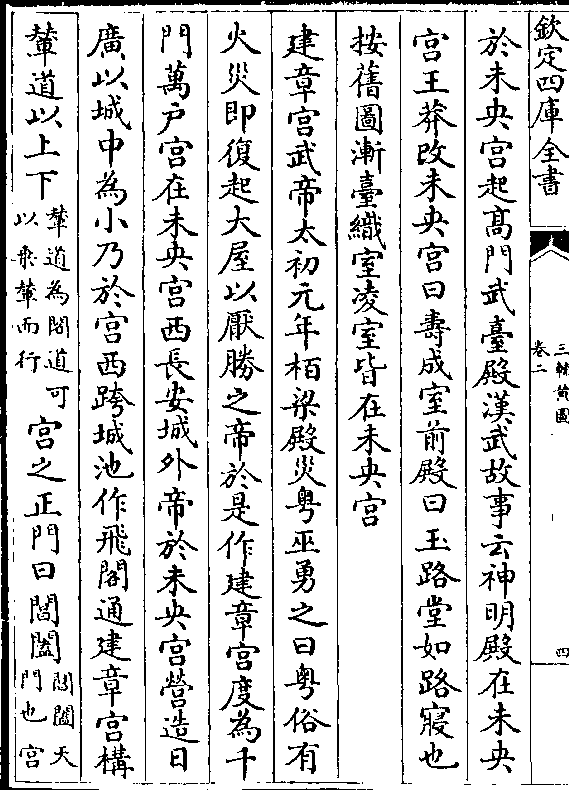 欽定四庫全書
三輔黃圖
卷二
四
於未央宮起髙門武臺殿漢武故事云神明殿在未央
宮王莽改未央宮曰壽成室前殿曰王路堂如路寢也
按舊圖漸臺織室凌室皆在未央宮
建章宮武帝太初元年栢梁殿災粤巫勇之曰粤俗有
火災即復起大屋以厭勝之帝於是作建章宮度為千
門萬户宮在未央宮西長安城外帝於未央宮營造日
廣以城中為小乃於宮西跨城池作飛閣通建章宮構
輦道以上下輦道為閣道可以乘輦而行宮之正門曰閶闔閶闔天門也宮